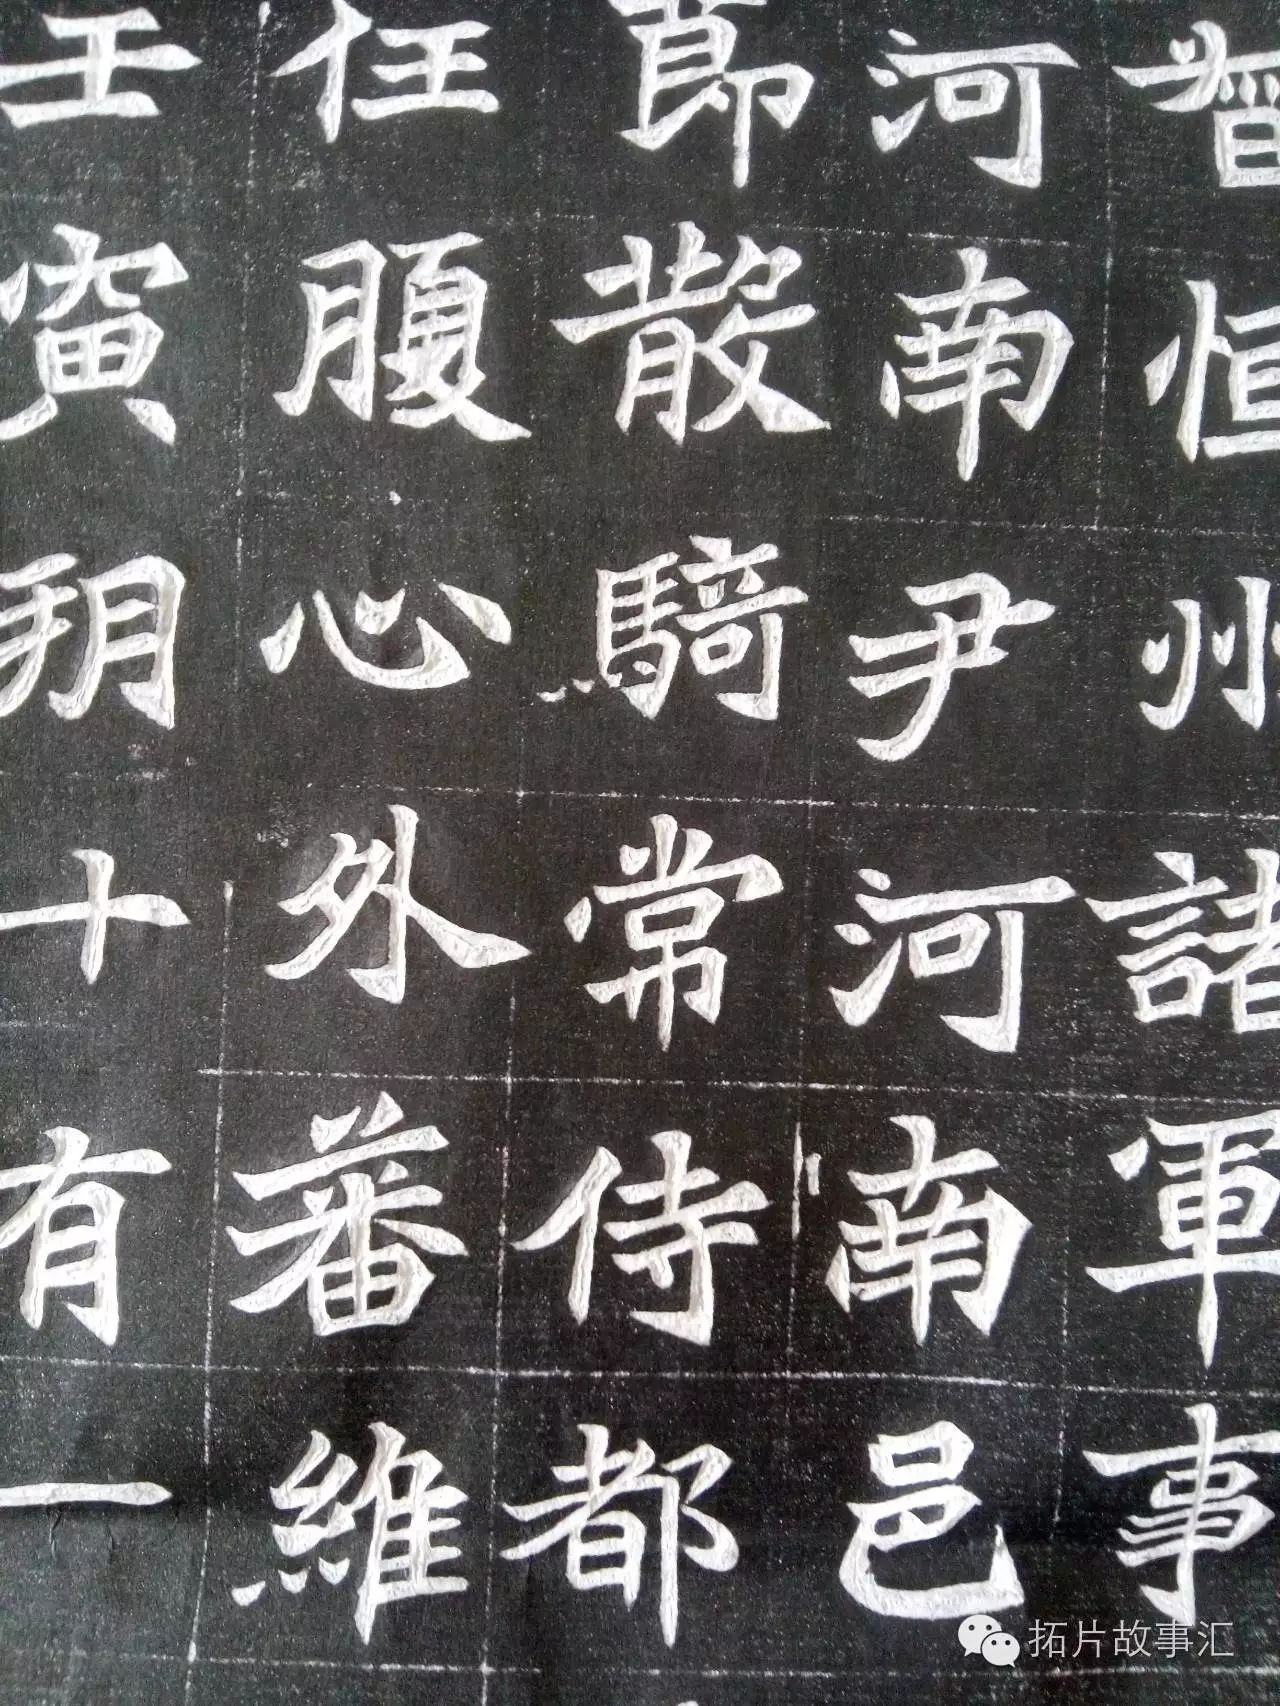 督恒州諸軍事
河南尹河南邑
節散騎常侍都
任腹心外蕃維
壬寅朔十有一
拓片故事汇